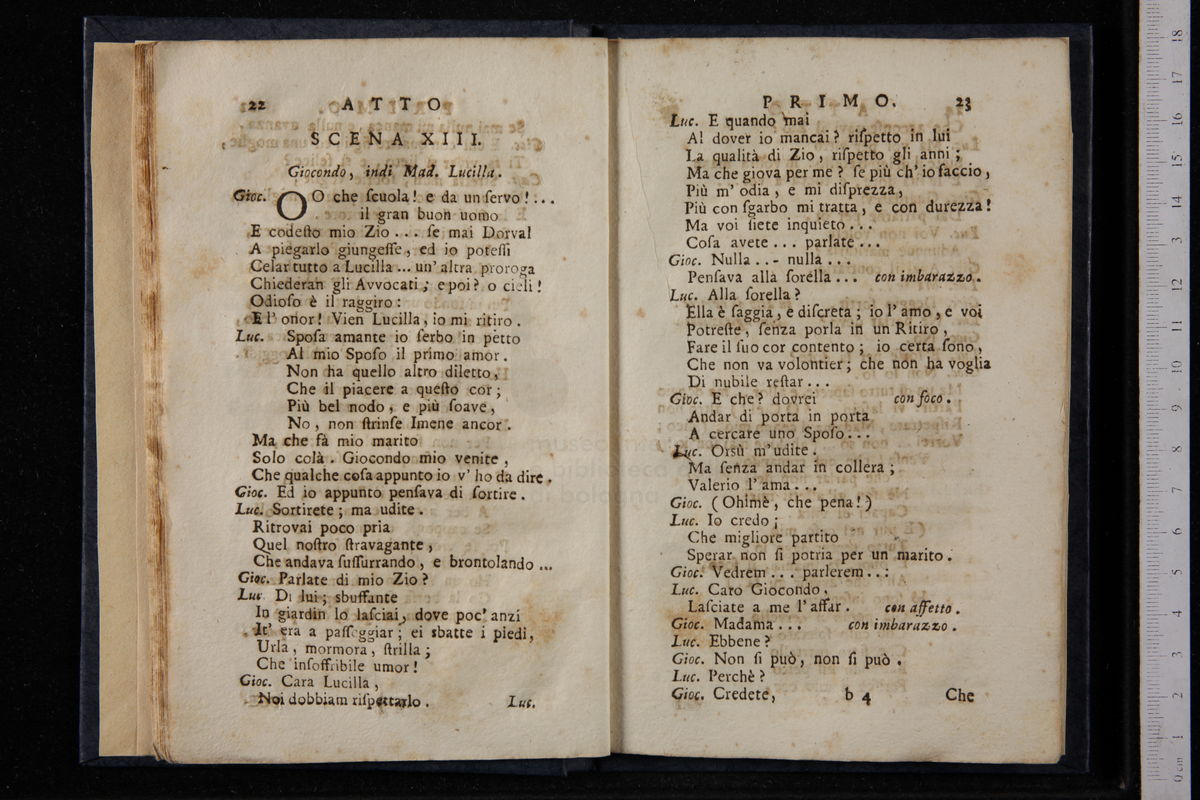 22 ATTO
SCENA XIII.
Giocondo, indi Mad. Lucilla.
Gioc. OO che ſcuola! e da un ſervo!...
il gran buon uomo
E codeſto mio Zio... ſe mai Dorval
A piegarlo giungeſſe, ed io poteſſi
Celar tutto a Lucilla... un' altra proroga
Chiederan gli Avvocati; e poi? o cieli!
Odioſo è il raggiro:
E l' onor! Vien Lucilla, io mi ritiro.
Luc. Spoſa amante io ſerbo in petto
Al mio Spoſo il primo amor.
Non ha quello altro diletto,
Che il piacere a queſto cor;
Più bel nodo, e più ſoave,
No, non ſtrinſe Imene ancor.
Ma che fà mio marito
Solo colà. Giocondo mio venite,
Che qualche coſa appunto io v' ho da dire.
Gioc. Ed io appunto penſava di ſortire.
Luc. Sortirete; ma udite.
Ritrovai poco pria
Quel noſtro ſtravagante,
Che andava ſuſſurrando, e brontolando...
Gioc. Parlate di mio Zio?
Luc Di lui; sbuffante
In giardin lo laſciai, dove poc' anzi
It' era a paſſeggiar; ei sbatte i piedi,
Urla, mormora, ſtrilla;
Che inſoffribile umor!
Gioc. Cara Lucilla,
Noi dobbiam riſpettarlo.
Luc.
PRIMO. 23
Luc. E quando mai
Al dover io mancai? riſpetto in lui
La qualità di Zio, riſpetto gli anni;
Ma che giova per me? ſe più ch' io faccio,
Più m' odia, e mi diſprezza,
Più con ſgarbo mi tratta, e con durezza!
Ma voi ſiete inquieto...
Coſa avete... parlate...
Gioc. Nulla..- nulla...
Penſava alla ſorella... con imbarazzo.
Luc. Alla ſorella?
Ella è ſaggia, e diſcreta; io l' amo, e voi
Potreſte, ſenza porla in un Ritiro,
Fare il ſuo cor contento; io certa ſono,
Che non va volontier; che non ha voglia
Di nubile reſtar...
Gioc. E che? dovrei con foco.
Andar di porta in porta
A cercare uno Spoſo...
Luc. Orsù m' udite.
Ma ſenza andar in collera;
Valerio l' ama...
Gioc. (Ohimè, che pena!)
Luc. Io credo;
Che migliore partito
Sperar non ſi potria per un marito.
Gioc. Vedrem... parlerem..:
Luc. Caro Giocondo,
Laſciate a me l' affar. con affetto.
Gioc. Madama... con imbarazzo.
Luc. Ebbene?
Gioc. Non ſi può, non ſi può.
Luc. Perchè?
Gioc. Credete,
b 4 Che